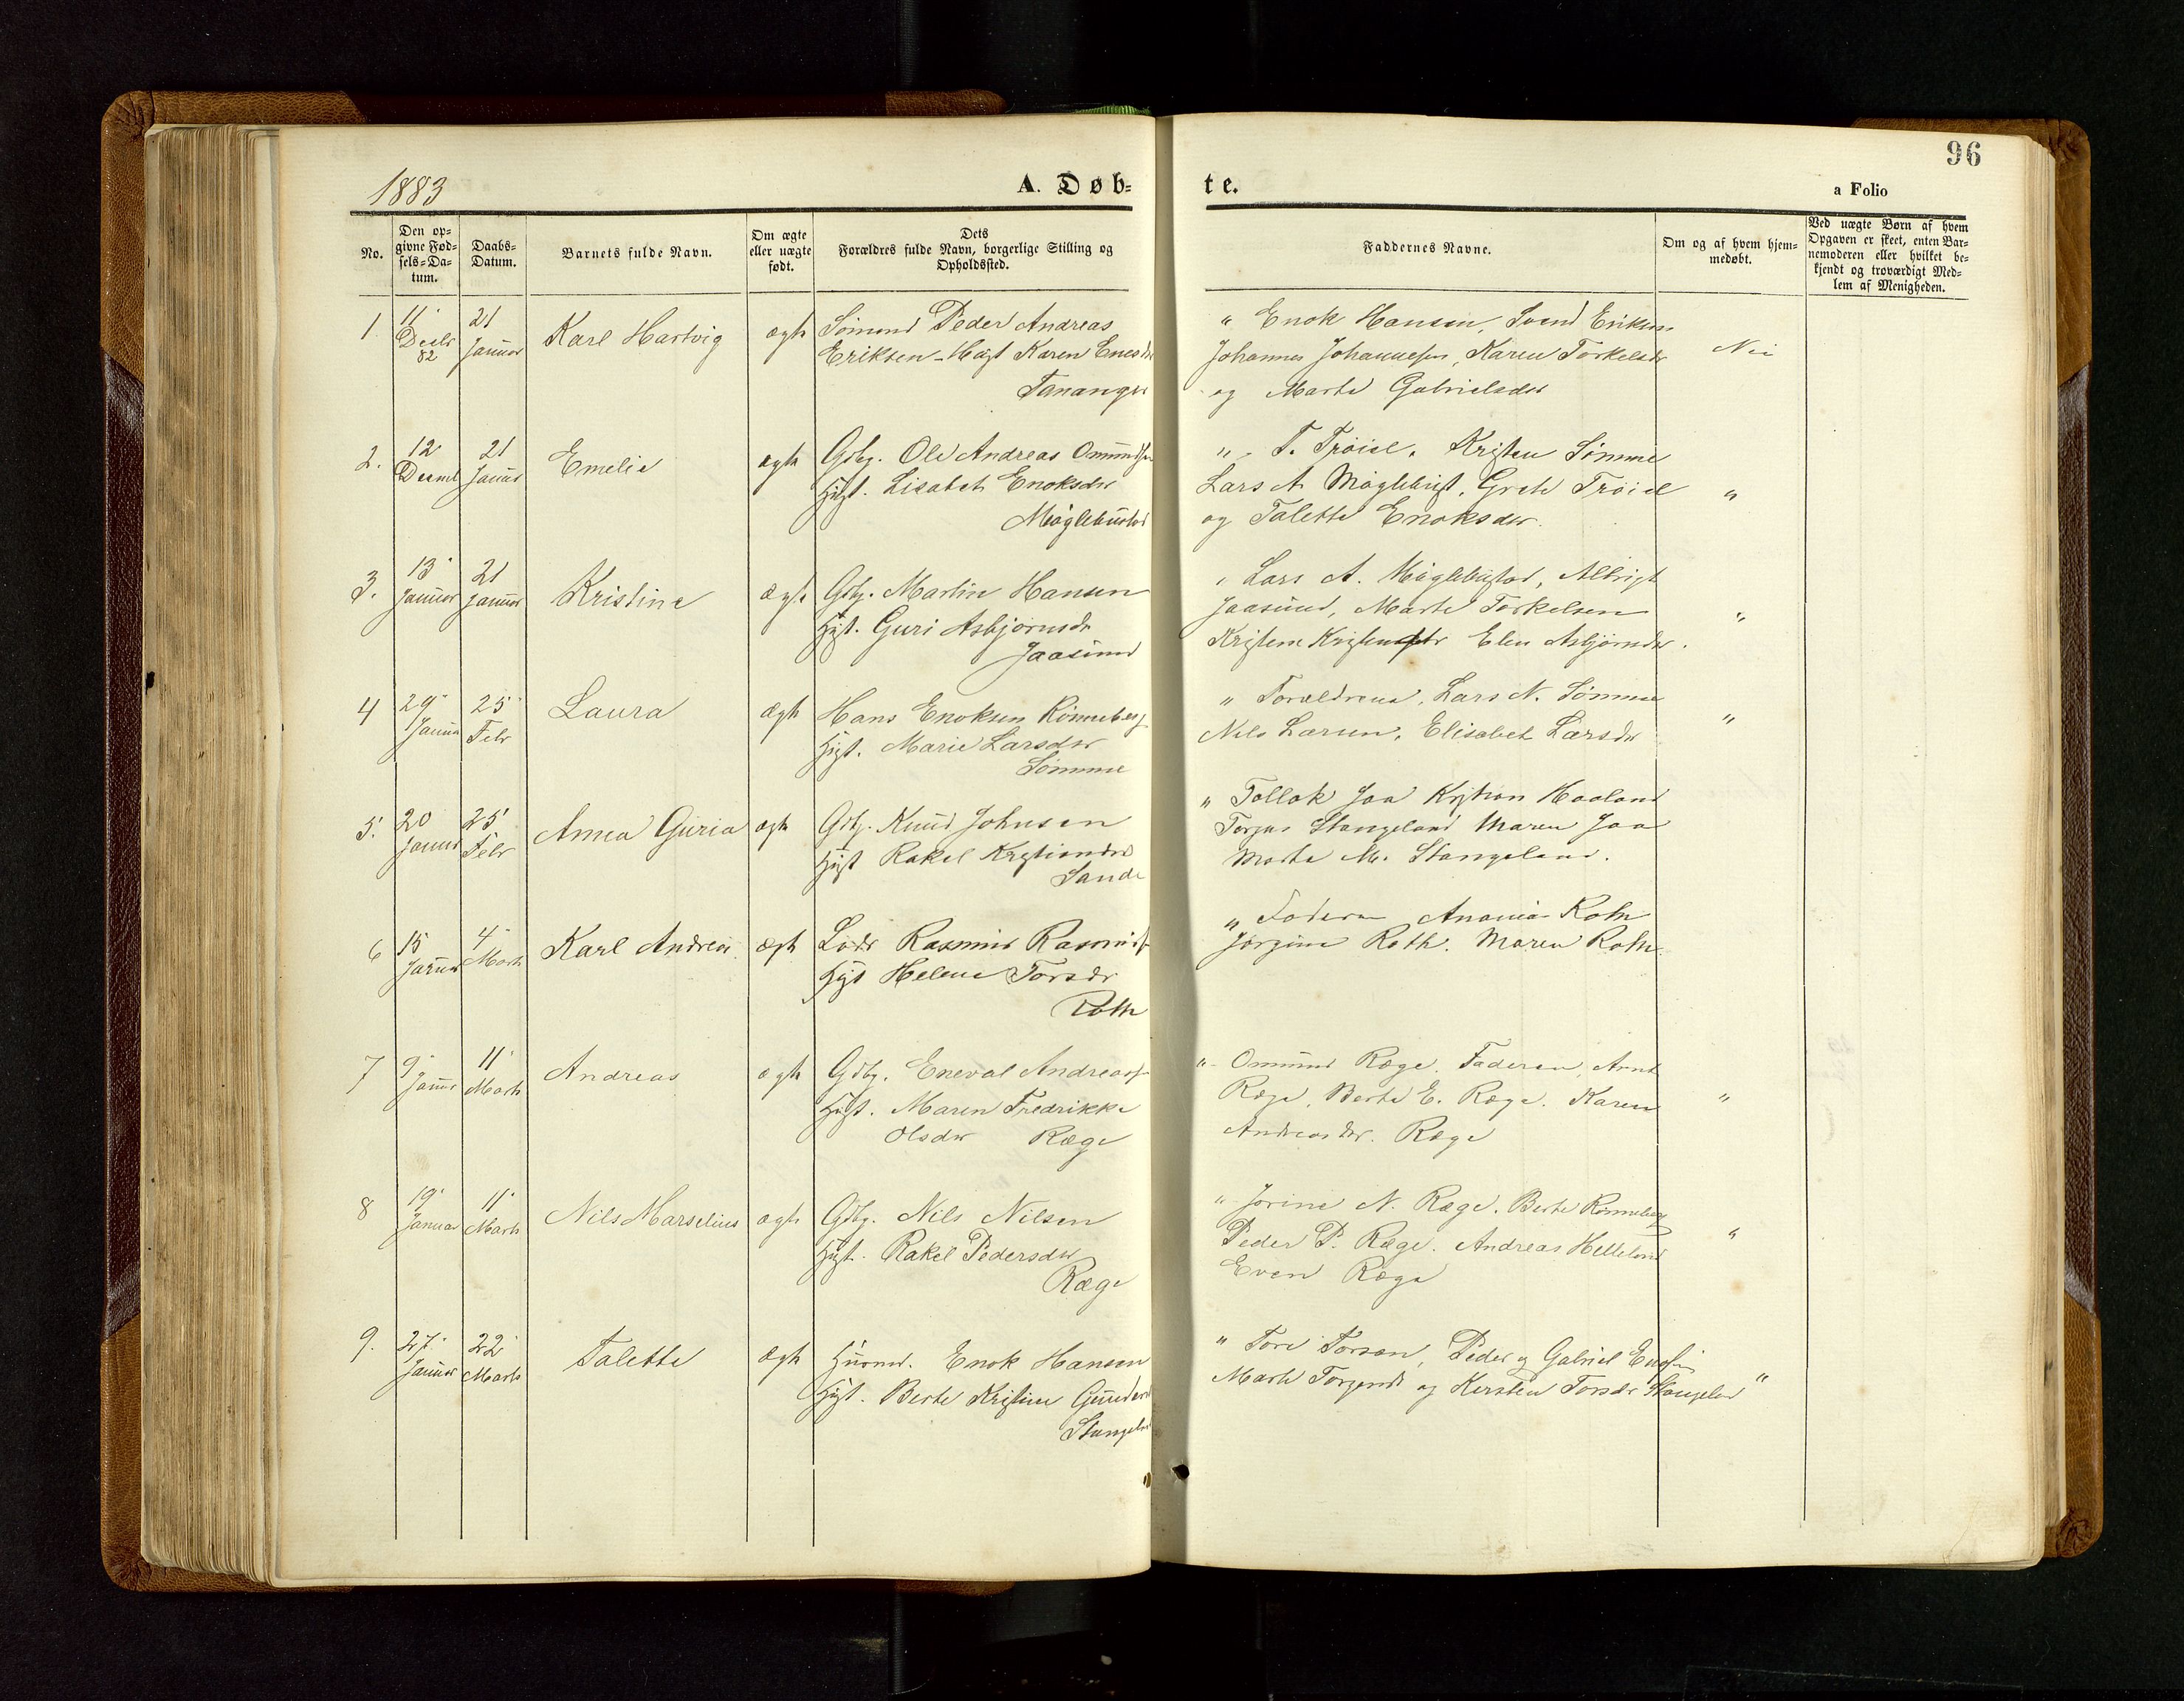 96
1883
A. Døb-
te.
a Folio
No.
Den op-
givne Fød-
sels-Da-
tum.
Daabs-
Datum.
Barnets fulde Navn.
Om ægte
eller uægte
født.
Dets
Forældres fulde Navn, borgerlige Stilling og
Opholdssted.
Faddernes Navne.
Om og af hvem hjem-
medøbt.
Ved uægte Børn af hvem
Opgaven er skeet, enten Bar-
nemoderen eller hvilket be-
kjendt og troværdigt Med-
lem af Menigheden.
1.
11
Decbr
82
21
Januar
Karl Hartvig
ægte
Sømand Peder Andreas
Eriksen - Hugst Karen Enes dr
Tananger
" Enok Hansen, Svend Eriksen
Johannes Johannesen, Karen Torkelsdr
og Marte Gabrielsdr
Nei
2.
12
Decmb
21
Januar
Emelie
ægte
Gdbg. Ole Andreas Ommundsen
Hgst. Lisabet Enoksdr
Møglebustad
" T. Trøiel. Kristen Sømme
Lars A Møglebust, Grete Trøiel
og Talette Enoksdr.
"
3.
13
Januar
21
Januar
Kristine
ægte
Gdbg. Martin Hansen
Hgst. Guri Asbjørnsdr
Jaasund
" Lars A. Møglebustad, Albrigt
Jaasund, Marte Torkelsen
Kristene Kristensdtr Elen Asbjørnsdr.
"
4
29
Januar
25
Febr
Laura
ægte
Hans Enoksen Rønneberg
Hgst. Marie Larsdr
Sømme
" Forældrene, Lars N. Sømme
Nils Larsen, Elisabet Larsdr
"
5.
20
Januar
25
Febr
Anna Guria
ægte
Gdbg. Knud Johnsen
Hgst Rakel Kristiansdr
Sande
" Tollak Joa Kristian Haaland
Torger Stangeland Maren Joa
Marta M. Stangeland.
6
15
Januar
4
Marts
Karl Andreas
ægte
Lods Rasmus Rasmuss
Hgst Helene Torsdr
Roth
" Faderen Anania Roth
Jørgine Roth. Maren Roth.
7
9
Januar
11
Marts
Andreas
ægte
Gdbg. Eneval Andreass
Hgst. Maren Fredrikke
Olsdr Ræge
" Ommund Ræge. Faderen, Arnt
Ræge, Berte E. Ræge. Karen
Andreasdr. Ræge
"
8
19
Januar
11
Marts
Nils Marselius
ægte
Gdbg. Nils Nilsen
Hgst. Rakel Pedersdr
Ræge
" Jorine N. Ræge. Berte Rønneberg
Peder P. Ræge. Andreas Helleland
Even Ræge
"
9.
27
Januar
22
Marts
Talette
ægte
Huusmd. Enok Hansen
Hgst. Berte Kristine Gundersd
Stangeland
" Tore Torsen, Peder og Gabriel
Marte Torgersdr og Kirsten Torsdr Stangeland
"